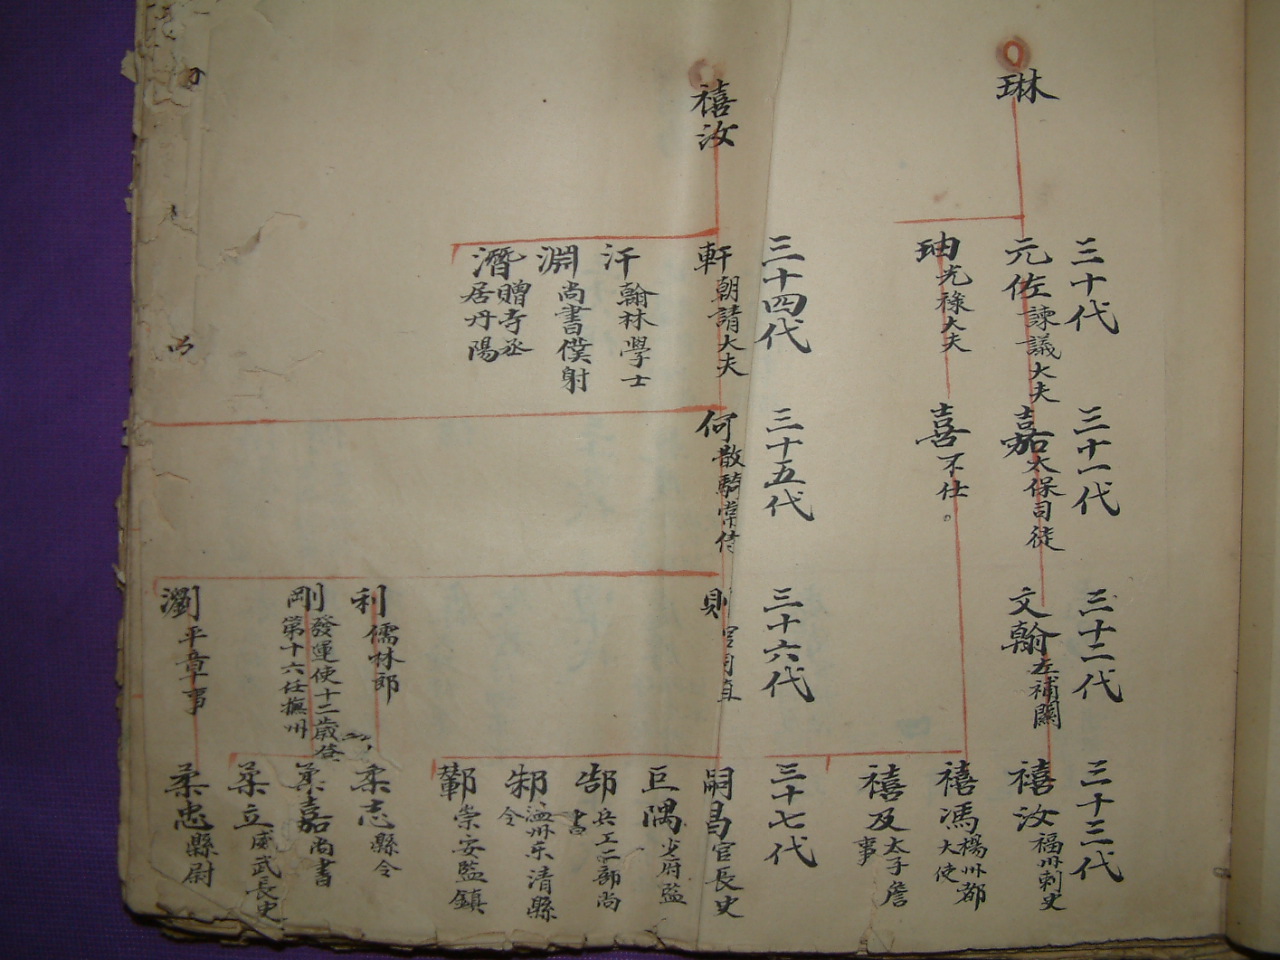 琳
三十代
元佐諫議大夫
㚬光祿大夫
三十一代
嘉太保司徒
喜不仕。
三十二代
文翰左補闕
三十三代
禧汝福州刺史
禧馮楊州都大使
禧及太子詹事
禧汝
三十四代
軒朝請大夫
汗翰林學士
淵尚書僕射
潛贈寺丞居丹陽
三十五代
何散騎常侍
三十六代
則
利儒林郎
剛發運使十二歲登第十六任撫州
瀏平章事
三十七代
嗣昌官長史
巨隅少府監
郜兵工二部尚書
邾溫州乐清縣令
鄿崇安監鎮
柔志縣令
柔嘉尚書
柔立威武長史
柔忠縣尉